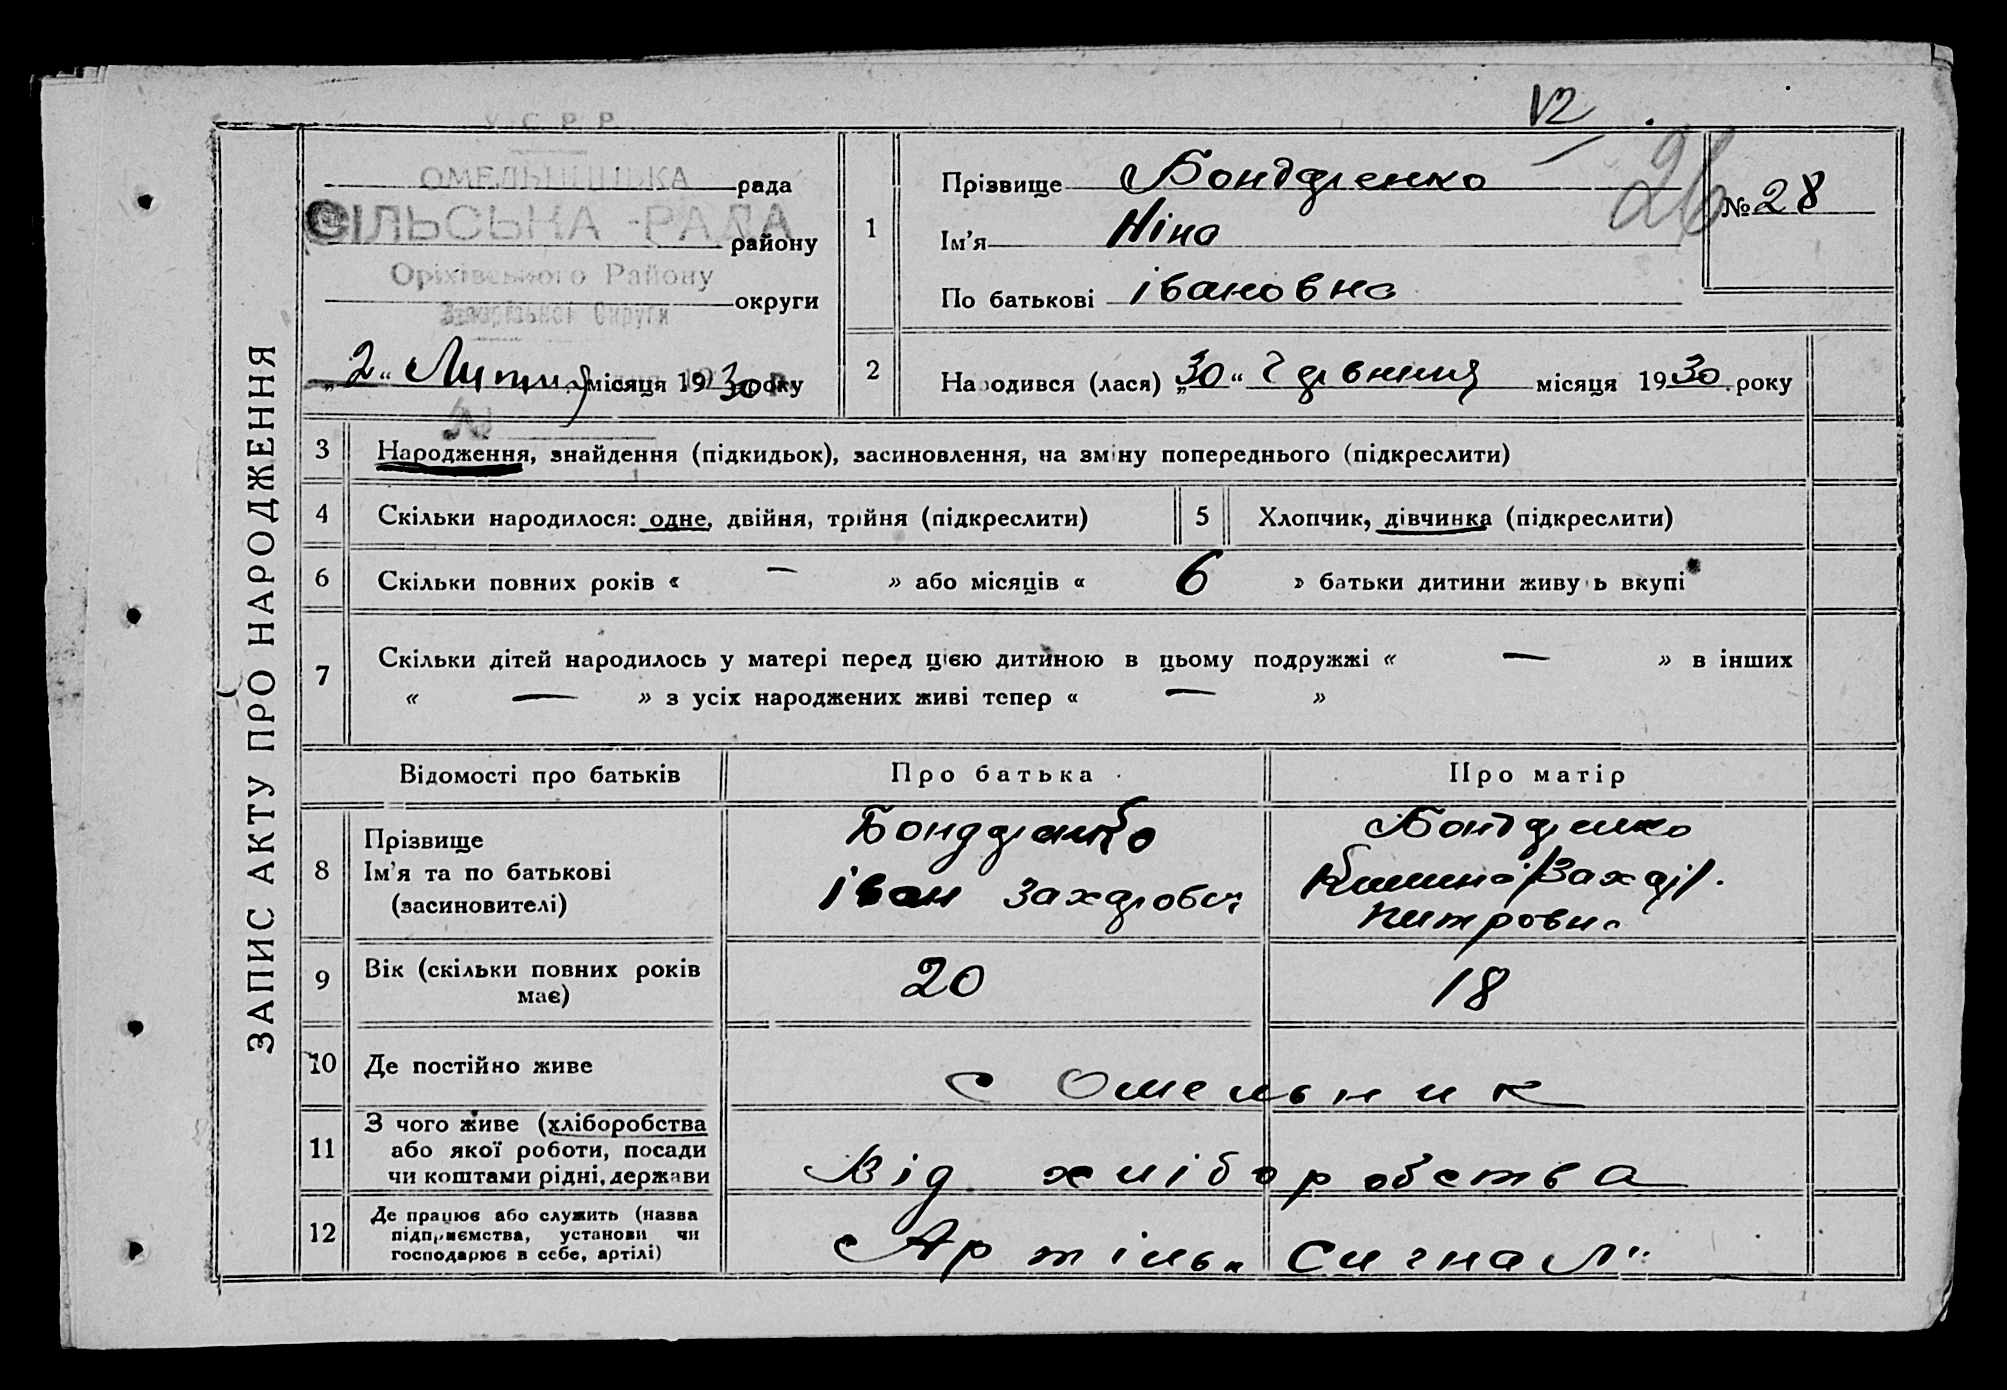 У. С. Р. Р.
ОМЕЛЬНИЦЬКА рада
СІЛЬСЬКА -РАДА району
Оріхівського Району
округи
Запорізької Округи
„2“ Липня місяця 1930 року
№
V2
26
№ 28
ЗАПИС АКТУ ПРО НАРОДЖЕННЯ
1
Прізвище Бондаренко
Ім’я Ніна
По батькові івановна
2 Народився (лася) „30“ Червиня місяця 1930 року
3 Народження, знайдення (підкидьок), засиновлення, на зміну попереднього (підкреслити)
4 Скільки народилося: одне, двійня, трійня (підкреслити) 5 Хлопчик, дівчинка (підкреслити)
6 Скільки повних років « — » або місяців « 6 » батьки дитини живуть вкупі
7 Скільки дітей народилось у матері перед цією дитиною в цьому подружжі « — » в інших
« — » з усіх народжених живі тепер « — »
Відомості про батьків Про батька Про матір
8 Прізвище
Ім’я та по батькові
(засиновителі)
Бондаренко
іван Захарович
Бондаренко
Питровн.
9 Вік (скільки повних років
має)
20 18
10 Де постійно живе с Омельник
11 З чого живе (хліборобства
або якої роботи, посади
чи коштами рідні, держави
Від хліборобства
12 Де працює або служить (назва
підприємства, установи чи
господарює в себе, артілі)
Артіль „Сигнал“